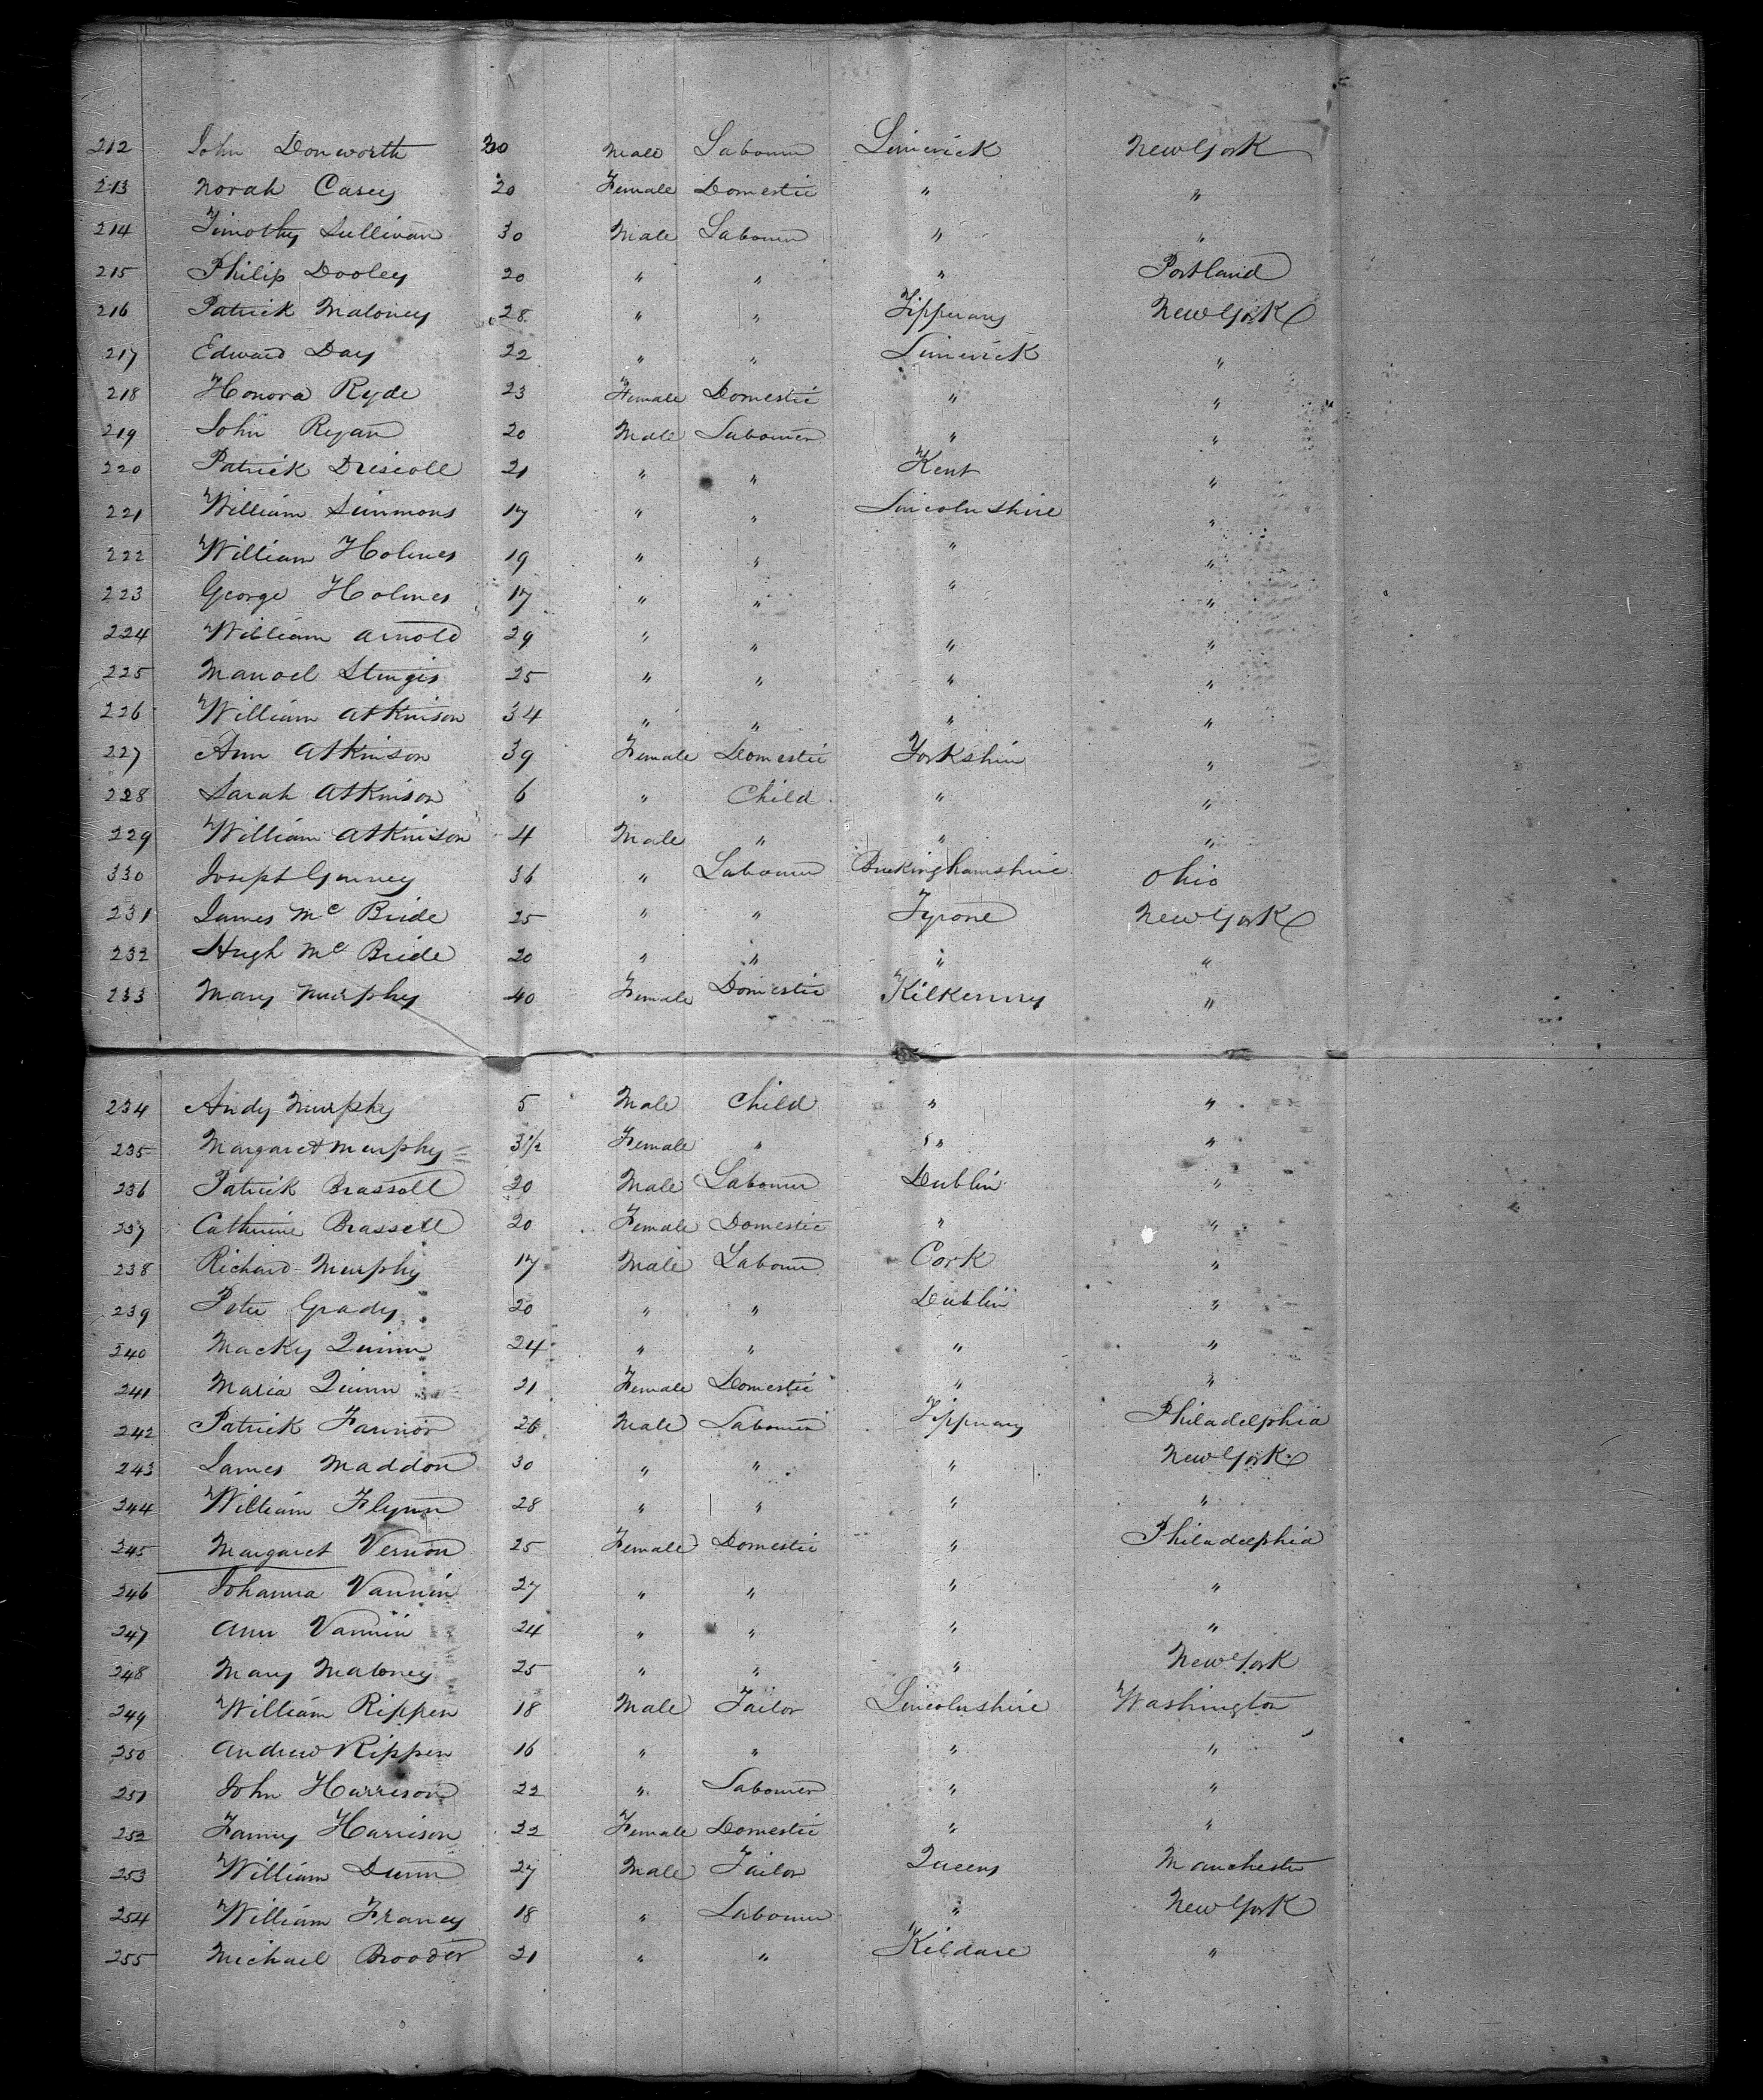 212 John Donworth 30 Male Labourer Limerick New York
213 Norah Casey 20 Female Domestic " "
214 Timothy Sullivan 30 Male Labourer " "
215 Philip Dooley 20 " " " Portland
216 Patrick Maloney 28 " " Tipperary New York
217 Edward Day 22 " " Limerick "
218 Honora Ryde 23 Female Domestic " "
219 John Ryan 20 Male Labourer " "
220 Patrick Driscoll 21 " " Kent "
221 William Simmons 17 " " Lincolnshire "
222 William Holmes 19 " " " "
223 George Holmes 17 " " " "
224 William Arnold 29 " " " "
225 Manoel Sturgis 25 " " " "
226 William Atkinson 34 " " " "
227 Ann Atkinson 39 Female Domestic Yorkshire "
228 Sarah Atkinson 6 " Child " "
229 William Atkinson 4 Male " " "
330 Joseph 36 " Labourer Buckinghamshire Ohio
231 James Mc Bride 25 " " Tyrone New York
232 Hugh Mc Bride 20 " " " "
233 Mary Murphy 40 Female Domestic Kilkenny "
234 Andy Murphy 5 Male Child " "
235 Margaret Murphy 3 1/2 Female " " "
236 Patrick Brassell 20 Male Labourer Dublin "
237 Catherine Brassell 20 Female Domestic " "
238 Richard Murphy 17 Male Labourer Cork "
239 Peter Grady 20 " " Dublin "
240 Macky Quinn 24 " " " "
241 Maria Quinn 21 Female Domestic " "
242 Patrick Fannon 26 Male Labourer Tipperary Philadelphia
243 James Maddon 30 " " " New York
244 William Flynn 28 " " " "
245 Margaret Vernon 25 Female Domestic " Philadelphia
246 Johanna Vannin 27 " " " "
247 Ann Vannin 24 " " " "
248 Mary Maloney 25 " " " New York
249 William Rippen 18 Male Tailor Lincolnshire Washington
250 Andrew Rippen 16 " " " "
251 John Harrison 22 " Labourer " "
252 Fanny Harrison 22 Female Domestic " "
253 William Dunn 27 Male Tailor Queens Manchester
254 William Franey 18 " Labourer " New York
255 Michael Brooder 21 " " Kildare "